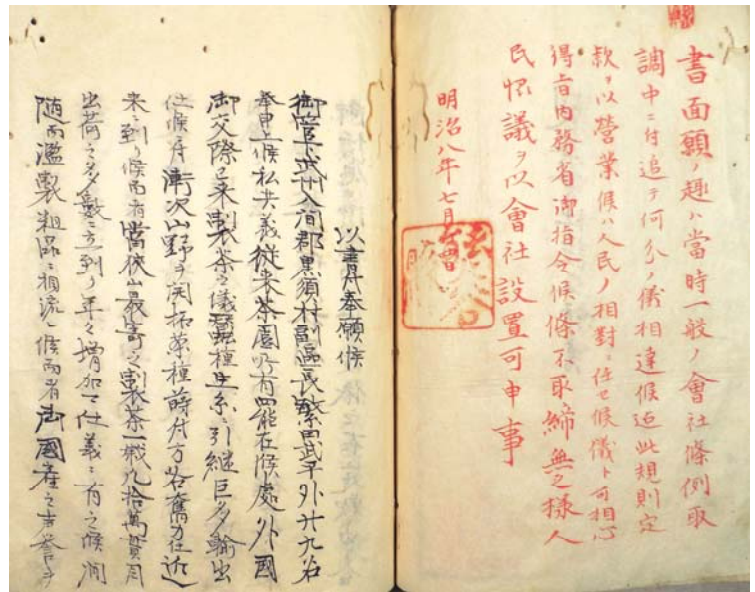 書面願ノ趣ハ當時一般ノ會社條例取
調中ニ付追テ何分ノ儀相達候迄此規則定
款ヲ以營業候ハ人民ノ相對ニ任セ候儀ト可相心
得旨内務省御指令候條不取締無之様人
民協議ヲ以會社設置可申事
明治八年七月
以書付奉願候
御管下武州入間郡黒須村副區長繁田武平外廿九名
奉申上候私共義従来茶園所有四能在候處外國
御交際已来製茶之儀蠶種生糸ニ引継巨多輸出
仕候ニ付漸次山野ヲ開拓茶種蒔付方各奮力仕近
来ニ到リ候而者當狭山最寄之製茶一歳九拾萬貫目
出荷之多數ニ立到リ年々増加之仕義ニ有之候間
随而濫製粗品ニ相流レ候而者御國産之声誉ヲ